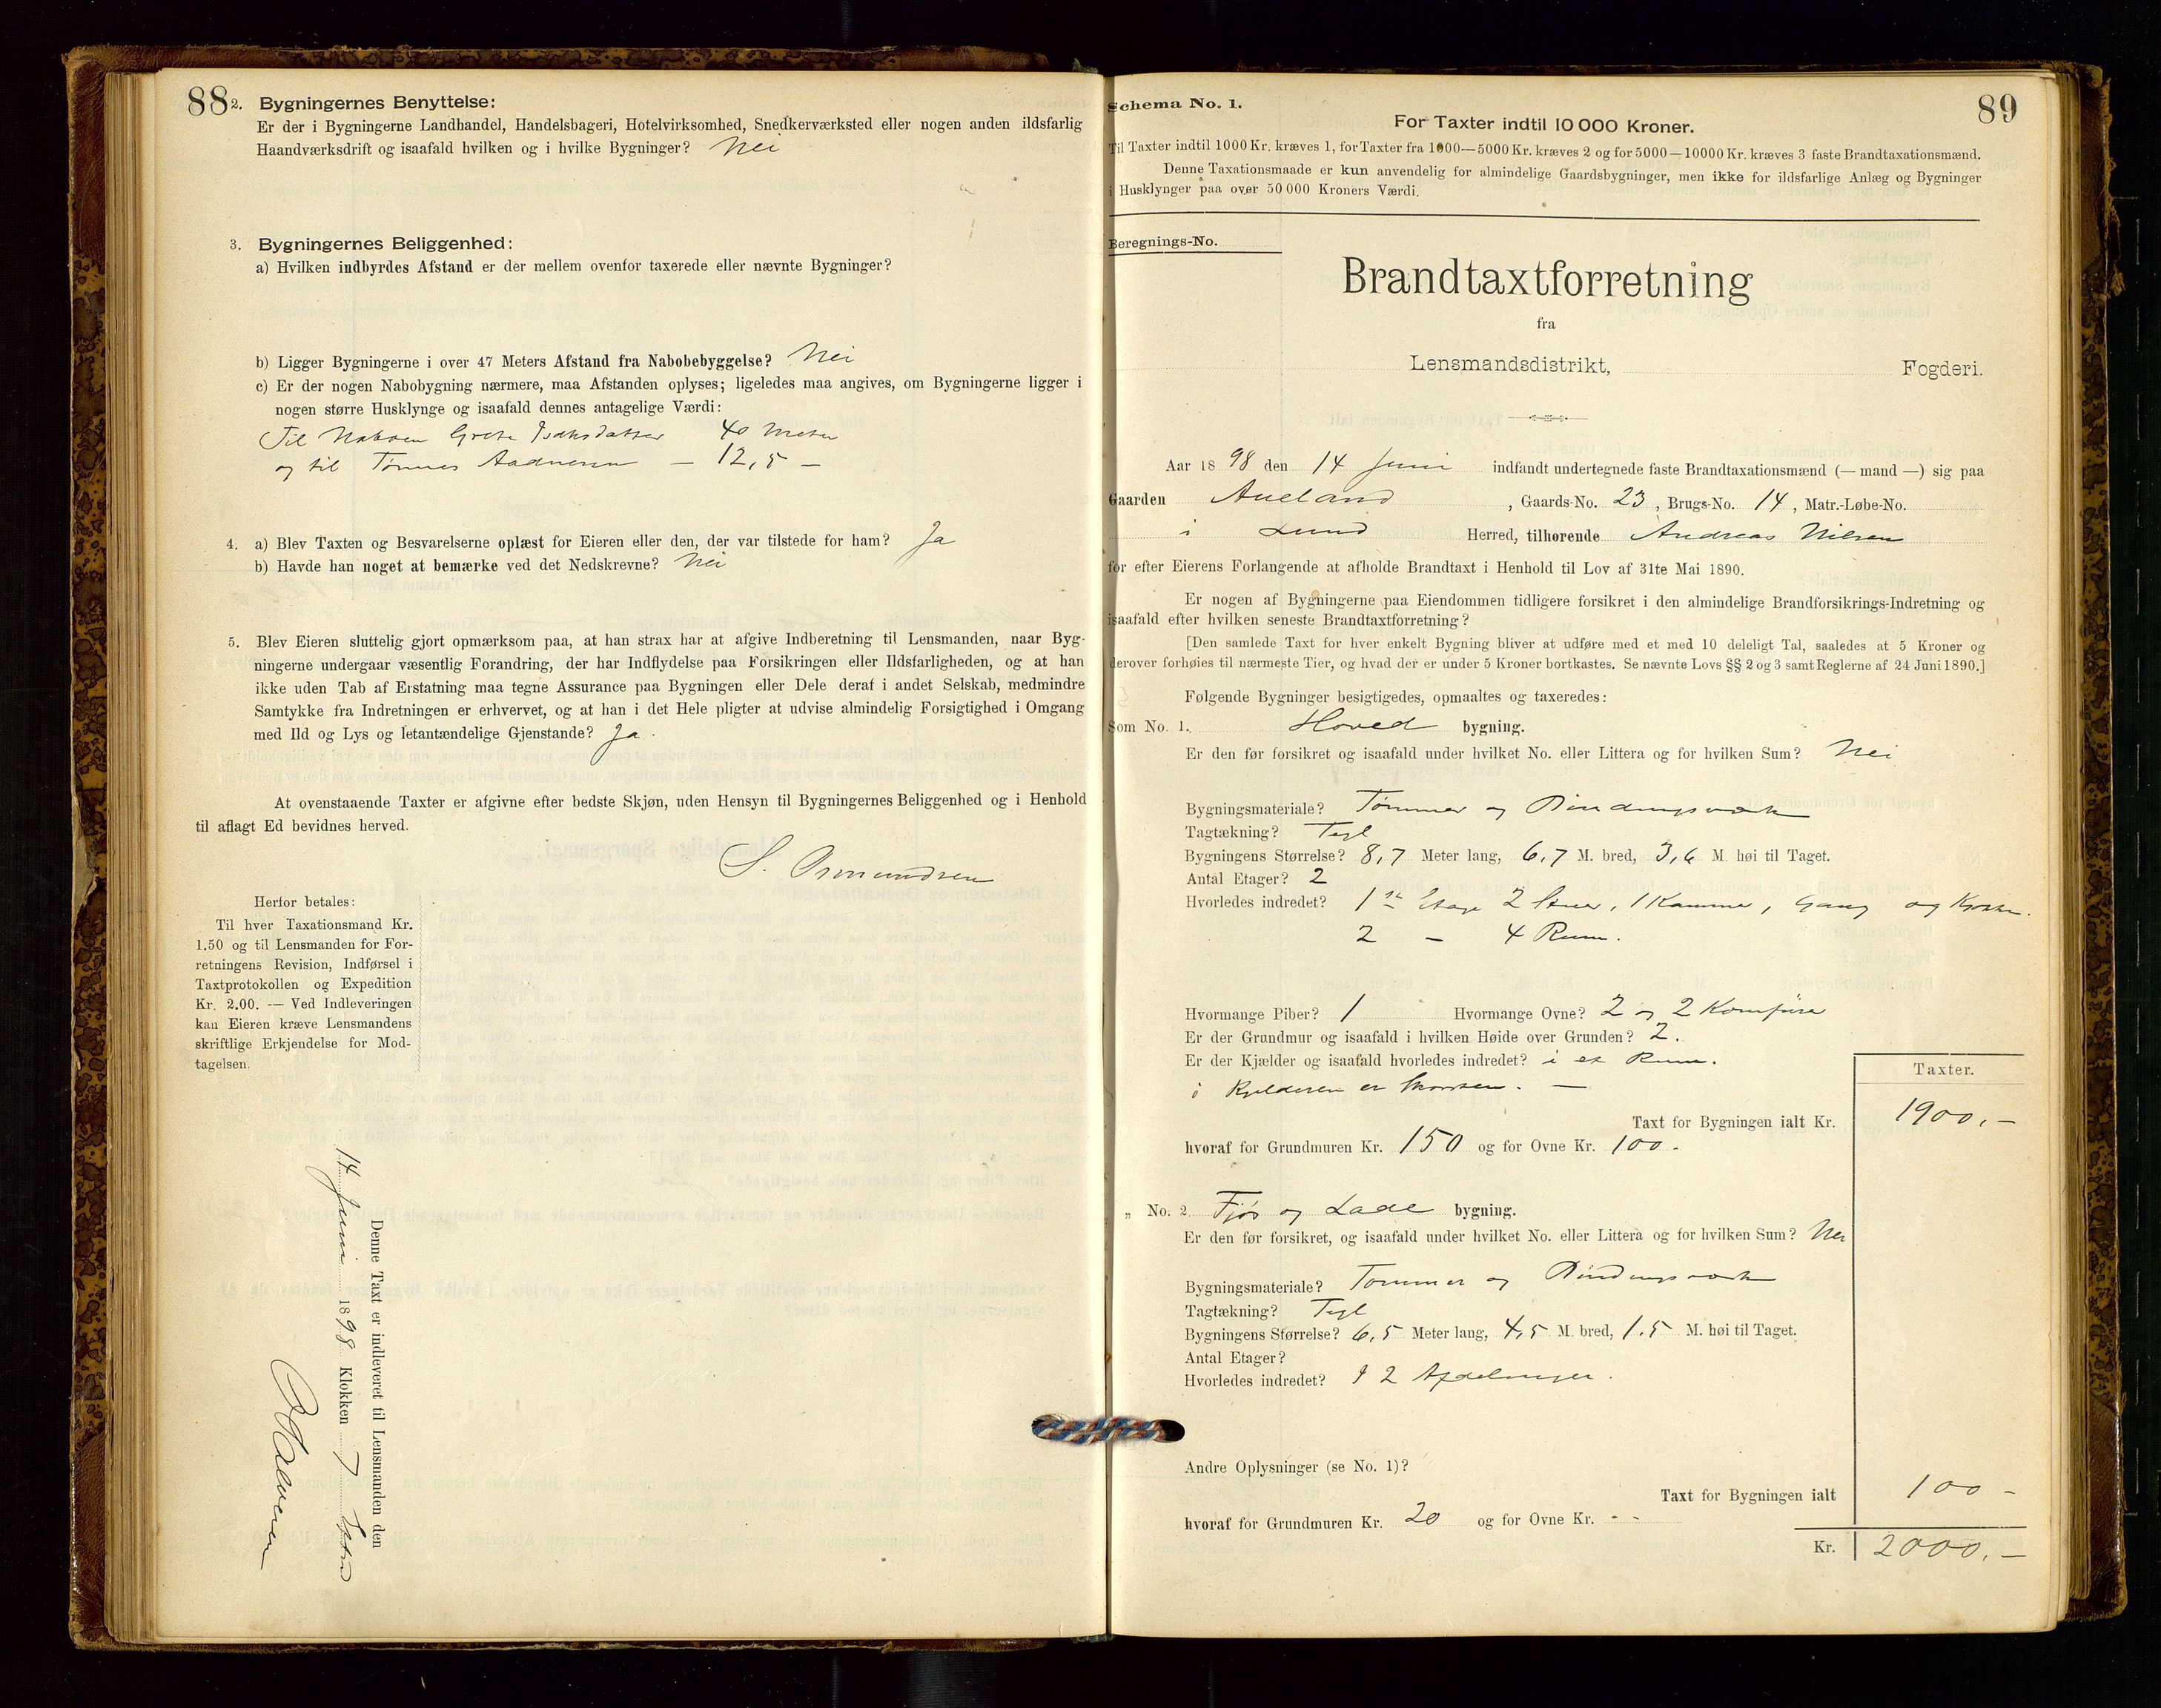 88
2. Bygningernes Benyttelse:
Er der i Bygningerne Landhandel, Handelsbageri, Hotelvirksomhed, Snedkerværksted eller nogen anden ildsfarlig
Haandværksdrift og isaafald hvilken og i hvilke Bygninger? Nei
3. Bygningernes Beliggenhed:
a) Hvilken indbyrdes Afstand er der mellem ovenfor taxerede eller nævnte Bygninger?
b) Ligger Bygningerne i over 47 Meters Afstand fra Nabobebyggelse? Nei
c) Er der nogen Nabobygning nærmere, maa Afstanden oplyses; ligeledes maa angives, om Bygningerne ligger i
nogen større Husklynge og isaafald dennes antagelige Værdi:
Til Naboen Grete Isaksdatter 40 Meter
og til Tønnes Aadnesen — 12,5 —
4. a) Blev Taxten og Besvarelserne oplæst for Eieren eller den, der var tilstede for ham? Ja
b) Havde han noget at bemærke ved det Nedskrevne? Nei
5. Blev Eieren sluttelig gjort opmærksom paa, at han strax har at afgive Indberetning til Lensmanden, naar Byg-
ningerne undergaar væsentlig Forandring, der har Indflydelse paa Forsikringen eller Ildsfarligheden, og at han
ikke uden Tab af Erstatning maa tegne Assurance paa Bygningen eller Dele deraf i andet Selskab, medmindre
Samtykke fra Indretningen er erhvervet, og at han i det Hele pligter at udvise almindelig Forsigtighed i Omgang
med Ild og Lys og letantændelige Gjenstande? Ja.
At ovenstaaende Taxter er afgivne efter bedste Skjøn, uden Hensyn til Bygningernes Beliggenhed og i Henhold
til aflagt Ed bevidnes herved.
S. Osmundsen
Herfor betales:
Til hver Taxationsmand Kr.
1.50 og til Lensmanden for For-
retningens Revision, Indførsel i
Taxtprotokollen og Expedition
Kr. 2.00. — Ved Indleveringen
kan Eieren kræve Lensmandens
skriftlige Erkjendelse for Mod-
tagelsen.
Denne Taxt er indleveret til Lensmanden den
14 Juni 1898 Klokken 7
Schema No. 1.
89
For Taxter indtil 10 000 Kroner.
Til Taxter indtil 1000 Kr. kræves 1, for Taxter fra 1000—5000 Kr. kræves 2 og for 5000—10000 Kr. kræves 3 faste Brandtaxationsmænd.
Denne Taxationsmaade er kun anvendelig for almindelige Gaardsbygninger, men ikke for ildsfarlige Anlæg og Bygninger
i Husklynger paa over 50 000 Kroners Værdi.
Beregnings-No.
Brandtaxtforretning
fra
Lensmandsdistrikt, Fogderi.
Aar 1898 den 14 Juni indfandt undertegnede faste Brandtaxationsmænd (— mand —) sig paa
Gaarden Aueland, Gaards-No. 23, Brugs-No. 14, Matr.-Løbe-No.
i Lund Herred, tilhørende Andreas Nilsen
for efter Eierens Forlangende at afholde Brandtaxt i Henhold til Lov af 31te Mai 1890.
Er nogen af Bygningerne paa Eiendommen tidligere forsikret i den almindelige Brandforsikrings-Indretning og
isaafald efter hvilken seneste Brandtaxtforretning?
[Den samlede Taxt for hver enkelt Bygning bliver at udføre med et med 10 deleligt Tal, saaledes at 5 Kroner og
derover forhøies til nærmeste Tier, og hvad der er under 5 Kroner bortkastes. Se nævnte Lovs §§ 2 og 3 samt Reglerne af 24 Juni 1890.]
Følgende Bygninger besigtigedes, opmaaltes og taxeredes:
Som No. 1. Hoved bygning.
Er den før forsikret og isaafald under hvilket No. eller Littera og for hvilken Sum? Nei
Bygningsmateriale? Tømmer og Bindingsværk
Tagtækning? Tegl
Bygningens Størrelse? 8,7 Meter lang, 6,7 M. bred, 3,6 M. høi til Taget.
Antal Etager? 2
Hvorledes indredet? 1ste Etage 2 Stuer, 1 Kammer, Gang og Kjøkken.
2 — 4 Rum.
Hvormange Piber? 1 Hvormange Ovne? 2 og 2 Komfure
Er der Grundmur og isaafald i hvilken Høide over Grunden? 2.
Er der Kjælder og isaafald hvorledes indredet? i et Rum.
i Kjelderen er Skorsten. —
Taxter.
Taxt for Bygningen ialt Kr. 1900,—
hvoraf for Grundmuren Kr. 150 og for Ovne Kr. 100.
„ No. 2 Fjøs og Lade bygning.
Er den før forsikret, og isaafald under hvilket No. eller Littera og for hvilken Sum? Nei
Bygningsmateriale? Tømmer og Bindingsværk
Tagtækning? Tegl
Bygningens Størrelse? 6,5 Meter lang, 4,5 M. bred, 1.5 M. høi til Taget.
Antal Etager?
Hvorledes indredet? I 2 Afdelinger.
Andre Oplysninger (se No. 1)?
Taxt for Bygningen ialt 100 —
hvoraf for Grundmuren Kr. 20 og for Ovne Kr. - -
Kr. 2000,—